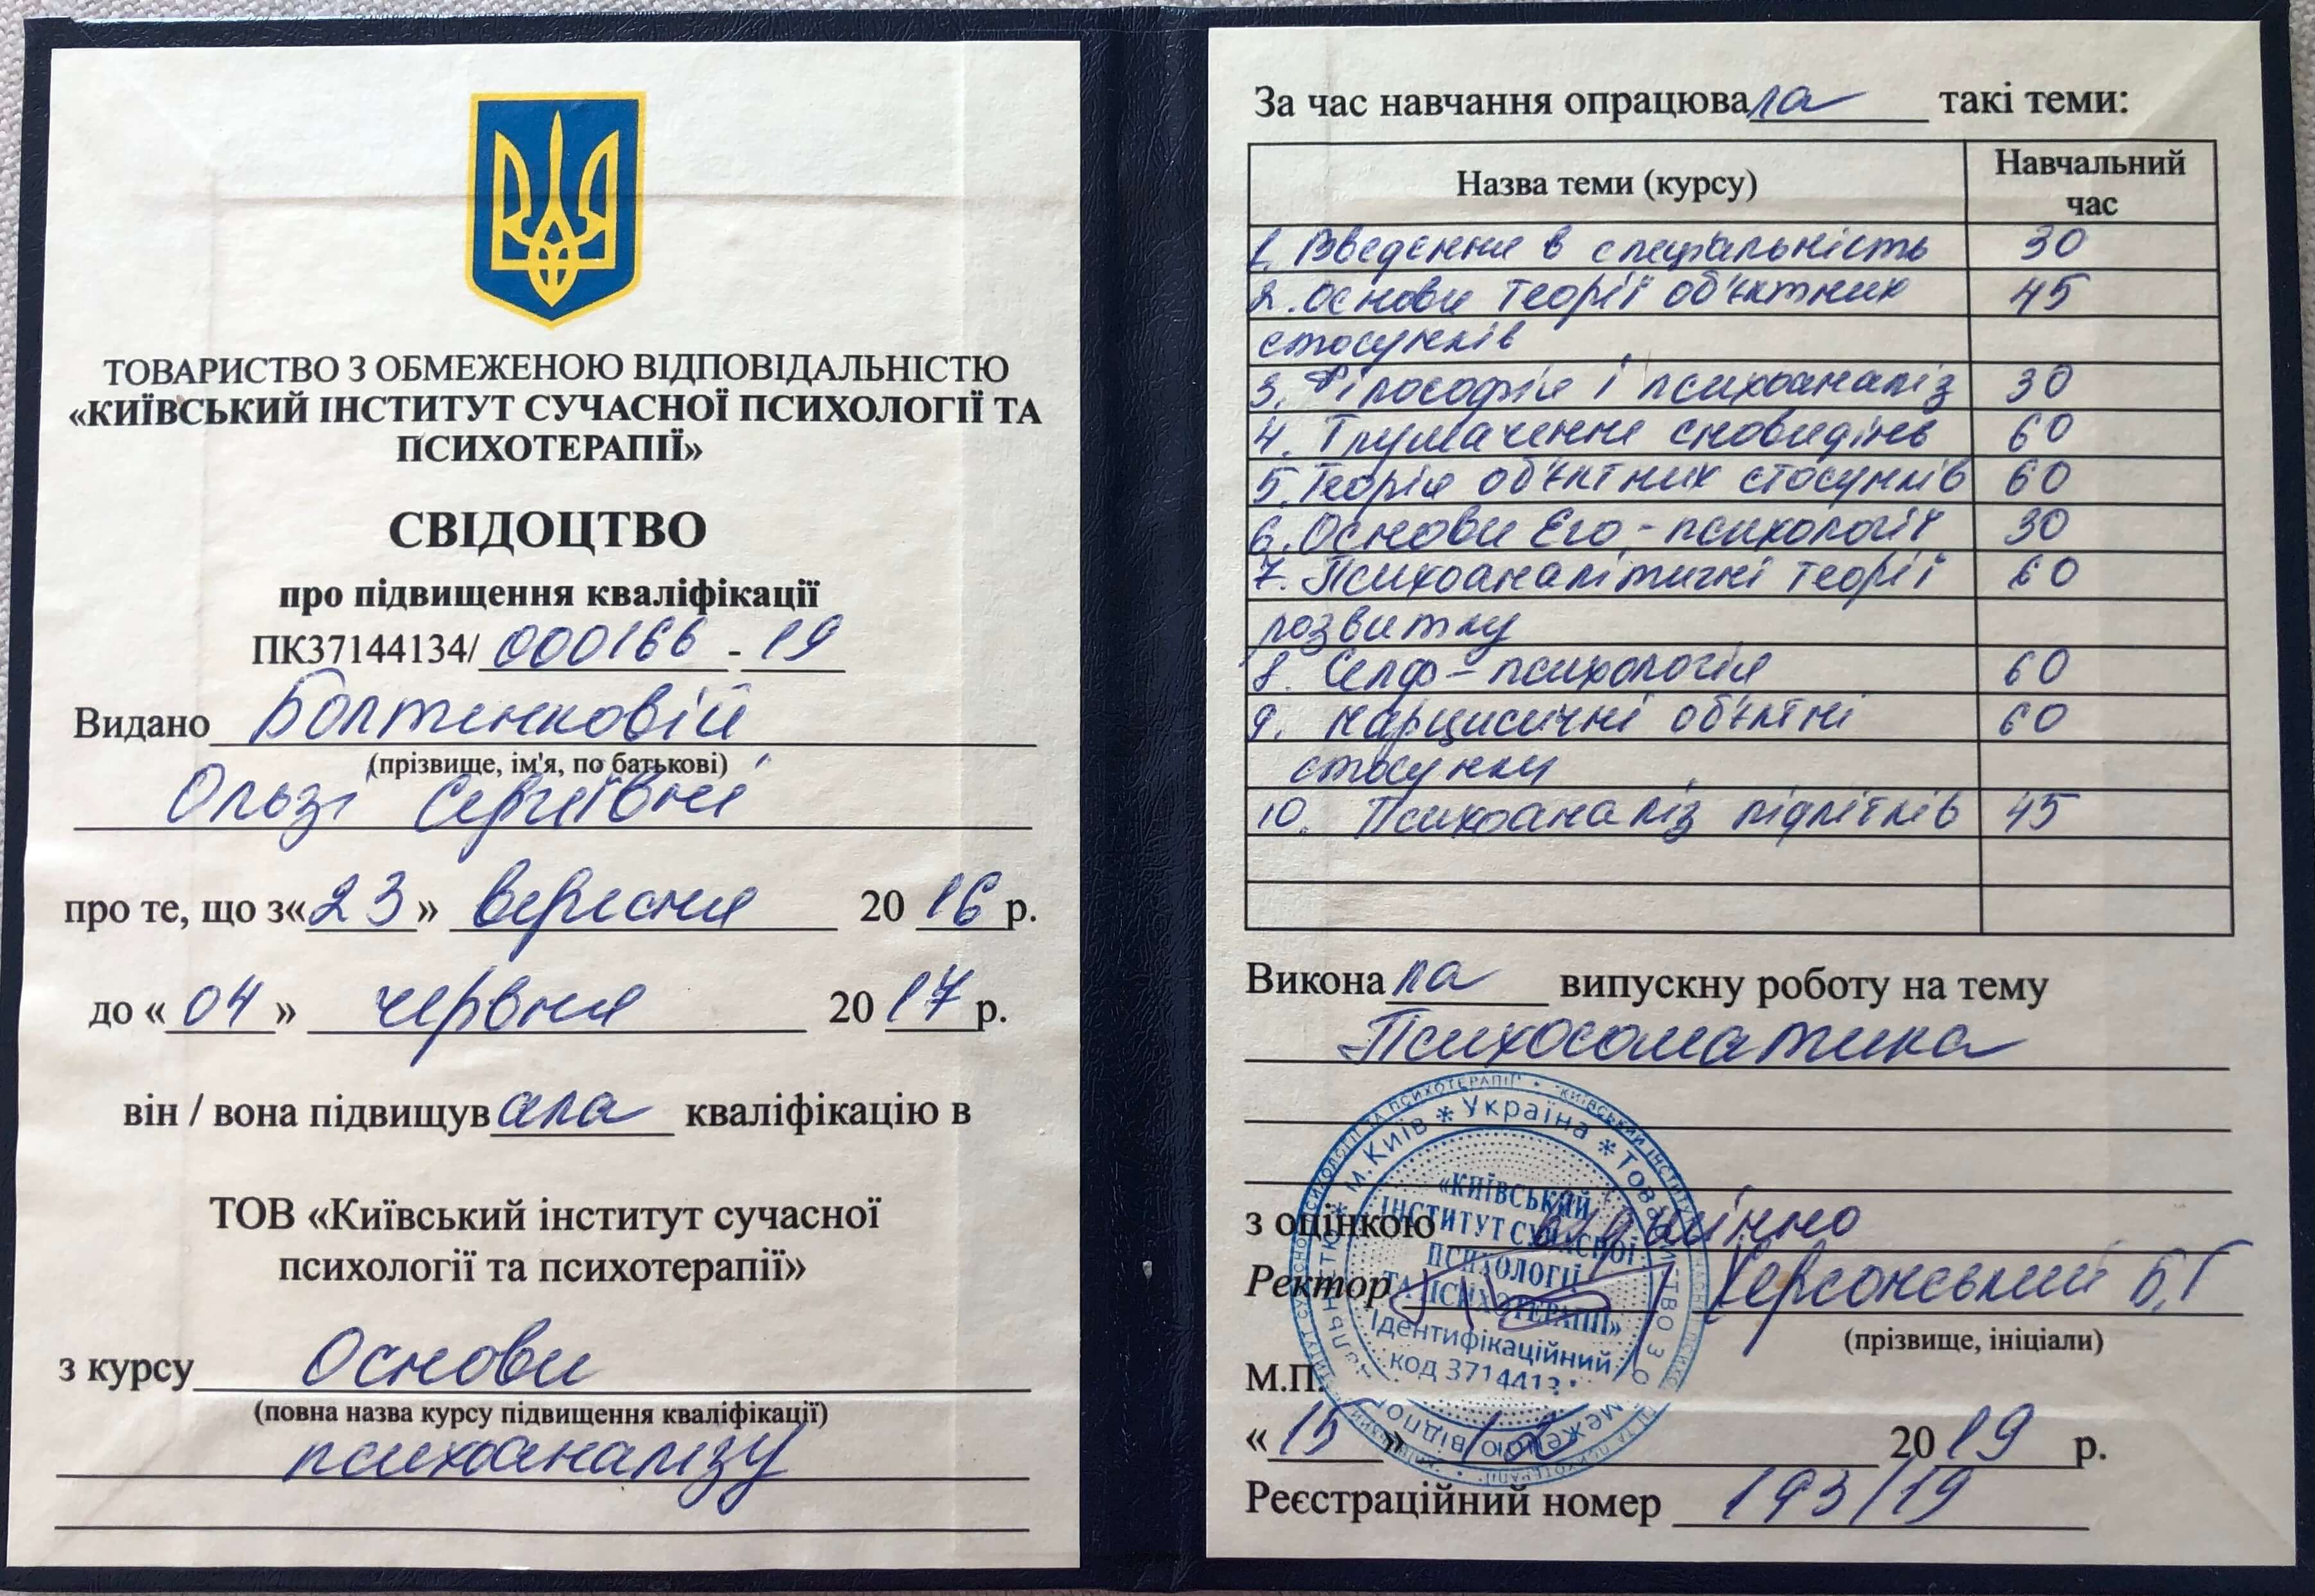 ТОВАРИСТВО З ОБМЕЖЕНОЮ ВІДПОВІДАЛЬНІСТЮ
«КИЇВСЬКИЙ ІНСТИТУТ СУЧАСНОЇ ПСИХОЛОГІЇ ТА
ПСИХОТЕРАПІЇ»
СВІДОЦТВО
про підвищення кваліфікації
ПК37144134/ 000166 - 19
Видано Болтенковій
(прізвище, ім'я, по батькові)
Ользі Сергіївні
про те, що з« 23 » вересня 20 16 р.
до « 04 » червня 20 17 р.
він / вона підвищувала кваліфікацію в
ТОВ «Київський інститут сучасної
психології та психотерапії»
з курсу Основи
(повна назва курсу підвищення кваліфікації)
психоаналізу
За час навчання опрацювала такі теми:
Назва теми (курсу) Навчальний
час
1. Введення в спеціальність 30
2. Основи теорії об'єктних 45
стосунків
3. Філософія і психоаналіз 30
4. Тлумачення сновидінь 60
5. Теорія об'єктних стосунків 60
6. Основи Его-психології 30
7. Психоаналітичні теорії 60
розвитку
8. Селф-психологія 60
9. Нарцисичні об'єктні 60
стосунки
10. Психоаналіз підлітків 45
Виконала випускну роботу на тему
Психосоматика
з оцінкою відмінно
Ректор Херсонський Б.Г
(прізвище, ініціали)
М.П.
« 15 » 12 20 19 р.
Реєстраційний номер 193/19
м.Київ * Україна *
«КИЇВСЬКИЙ
ІНСТИТУТ СУЧАСНОЇ
ПСИХОЛОГІЇ
ТА ПСИХОТЕРАПІЇ»
Ідентифікаційний
код